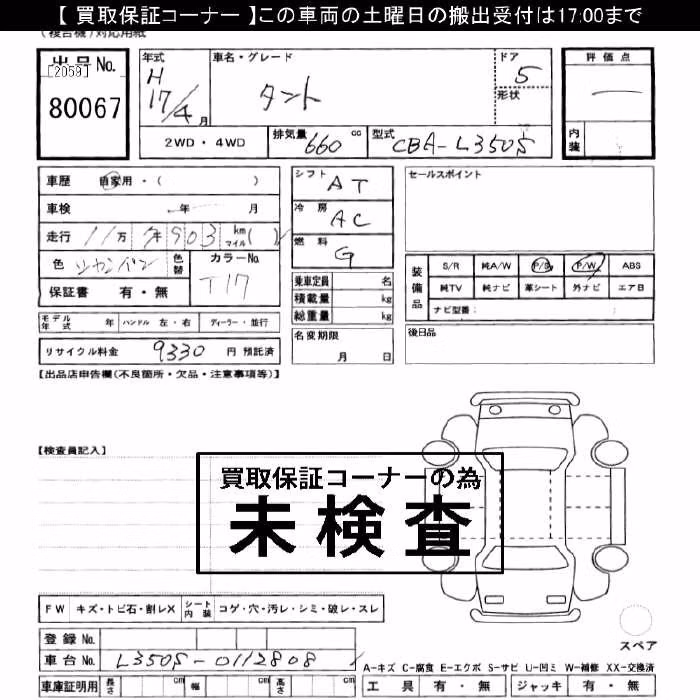 【 買取保証コーナー 】この車両の土曜日の搬出受付は17:00まで
(複合機)対応用紙
出品No.
[2059]
80067
年式
H
17/4月
車名・グレード
タント
ドア
5
形状
評価点
内装
2WD・4WD
排気量 660 cc
型式 CBA-L350S
車歴 自家用・( )
車検 年 月
走行 11万 903 km マイル( )
色 シャンパン 色替 カラーNo. T17
保証書 有・無
シフト AT
冷房 AC
燃料 G
乗車定員 名
積載量 kg
総重量 kg
セールスポイント
装備品 S/R 純A/W P/S P/W ABS
純TV 純ナビ 革シート 外ナビ エアB
ナビ型番:
モデル年式 年 ハンドル 左・右 ディーラー・並行
名変期限
月 日
後日品
リサイクル料金 9330 円 預託済
【出品店申告欄(不良箇所・欠品・注意事項等)】
【検査員記入】
買取保証コーナーの為
未検査
FW キズ・トビ石・割レX シート内装 コゲ・穴・汚レ・シミ・破レ・スレ
登録No.
車台No. L350S-0112808
スペア
A-キズ C-腐食 E-エクボ S-サビ U-凹ミ W-補修 XX-交換済
車庫証明用 長さ cm 幅 cm 高さ cm
工具 有・無 ジャッキ 有・無